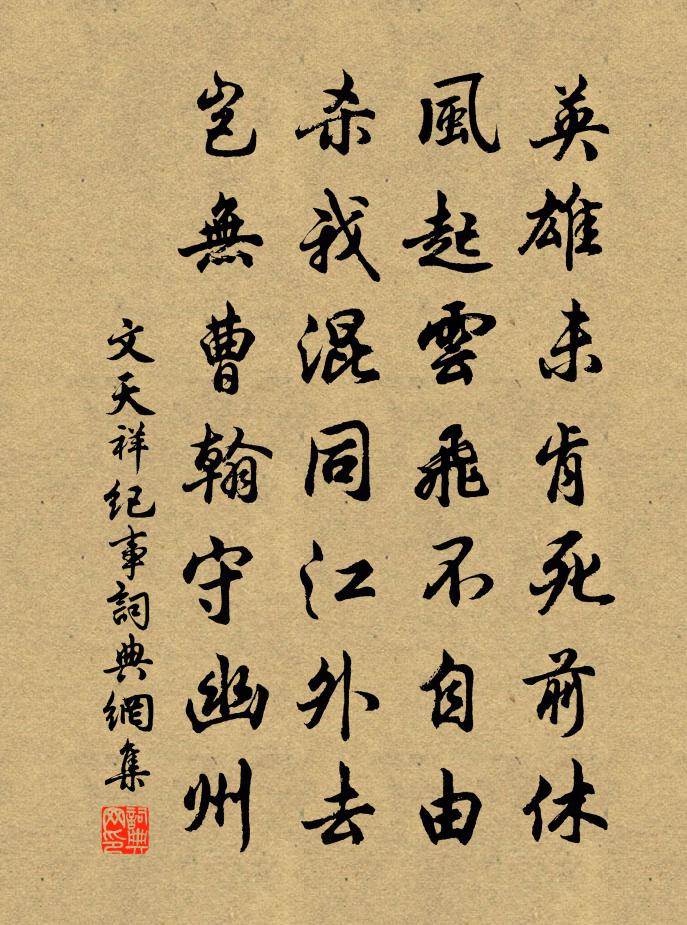 英雄未肯死前休
風起雲飛不自由
杀我混同江外去
岂無曹翰守幽州
文天祥纪事詞典網集
詞典
网印